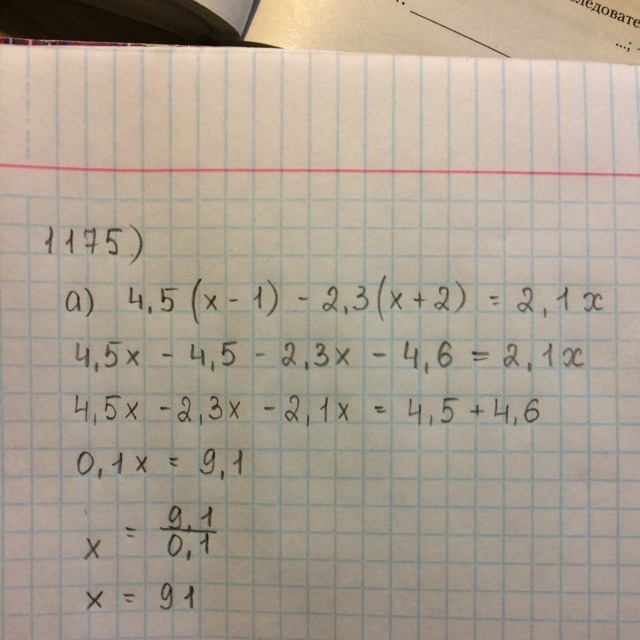 следовате
1175)
а) 4,5(x-1) - 2,3(x+2) = 2,1x
4,5x - 4,5 - 2,3x - 4,6 = 2,1x
4,5x - 2,3x - 2,1x = 4,5 + 4,6
0,1x = 9,1
x = 9,1/0,1
x = 91